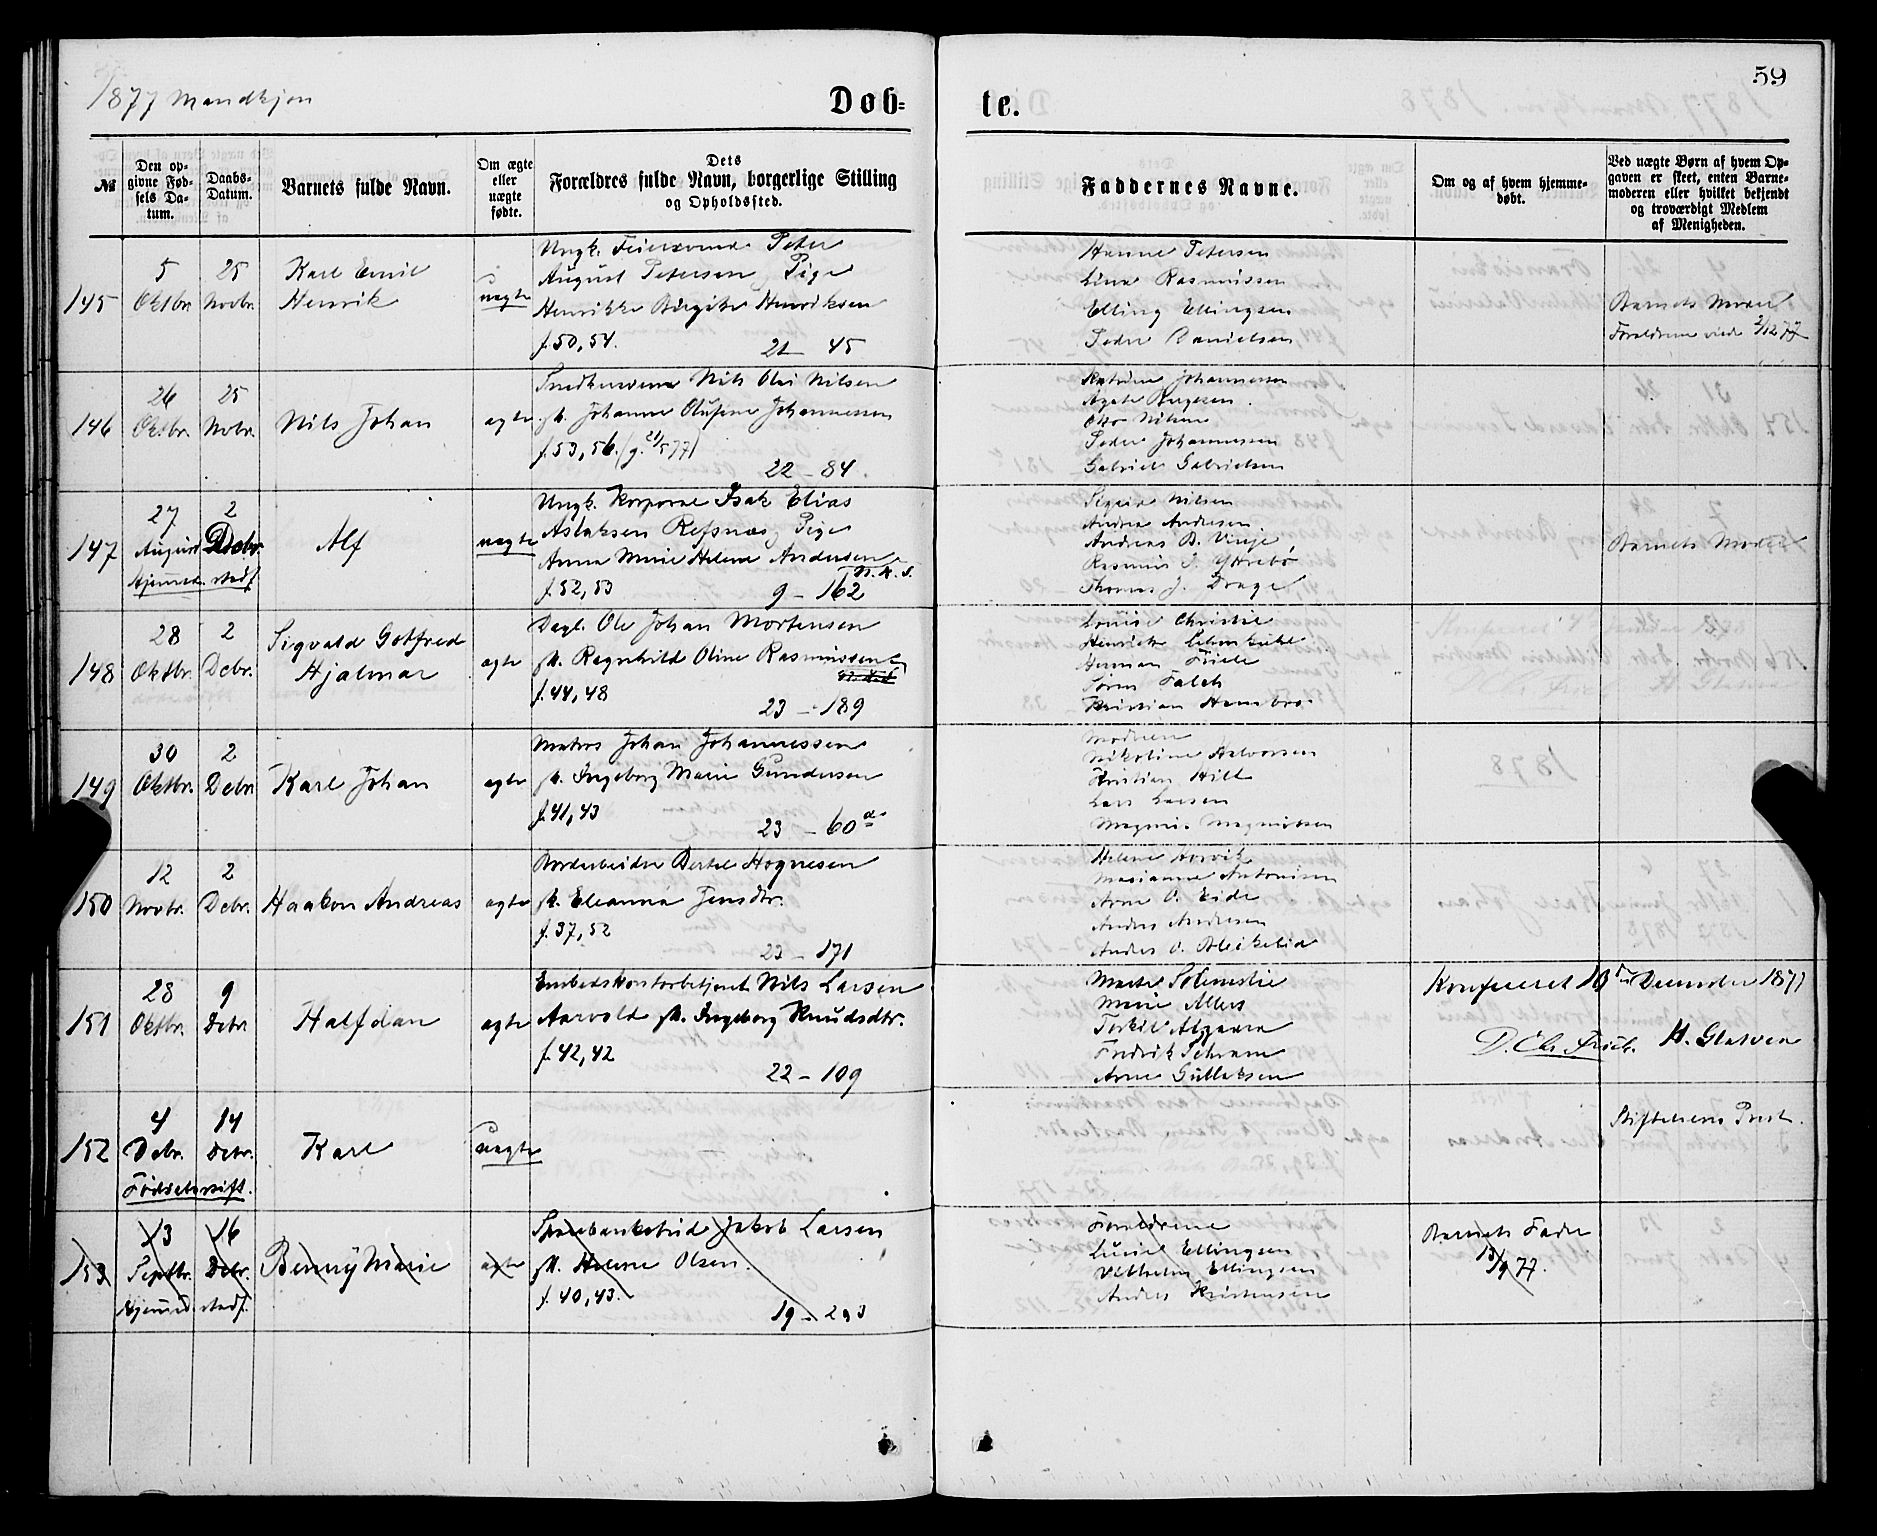 59
1877 Mandkjøn
Døb=
te.
№
Den op-
givne Fød-
sels Da-
tum.
Daabs-
Datum.
Barnets fulde Navn.
Om ægte
eller
uægte
fødte.
Dets
Forældres fulde Navn, borgerlige Stilling
og Opholdssted.
Faddernes Navne.
Om og af hvem hjemme-
døbt.
Ved uægte Børn af hvem Op-
gaven er skeet, enten Barne-
moderen eller hvilket bekjendt
og troværdigt Medlem
af Menigheden.
145
5
Oktbr.
25
Novbr.
Karl Emil
Henrik
uægte
Ungk. Feiersvend Peder
August Petersen Pige
Henrikke Birgitte Henriksen
f. 50, 54.
21 – 45
Hanne Petersen
Lina Rasmussen
Elling Ellingsen
Peder Danielsen
Barnets Moder
Forældrene viede 2/12 77
146
26
Oktbr.
25
Nvbr.
Nils Johan
ægte
Snedkersvend Nils Olai Nilsen
Johanne Olufine Johannessen
f. 53, 56. (g. 21/5 77)
22 – 84.
Katrine Johannessen
Otto Nilsen
Peder Johannessen
Gabriel Gabrielsen
147
27
August
Hjemmed. stadf.
2
Decbr.
Alf
uægte
Ungk. Korporal Isak Elias
Aslaksen Refsnæs, Pige
Anna Marie Helene Andersen
f. 52, 53
9 – 162
Signe Nilsen
Andrea Andresen.
Andreas B. Vinje
Rasmus J. Ytrebø
Thomas J. Drage
Barnets Moder
148
28
Oktbr.
2
Dcbr.
Sigvald Gotfred
Hjalmar
ægte
Dagl. Ole Johan Mortensen
Ragnhild Oline Rasmussen
f. 44, 48
23 – 189
Louise Christie
Herman Friele
Søren Falch
Kristian Hambro
149
30
Oktbr.
2
Debr.
Karl Johan
ægte
Matros Johan Johannessen
Ingeborg Marie Gundersen
f. 41, 43
23 – 60 a
Moderen
Nikoline Halvorsen
Kristian Hill
Lars Larsen
Magnus Magnussen
150
12
Novbr.
2
Debr.
Haakon Andreas
ægte
Jordarbeider Bertel Hognesen
Eleanna Jensdtr.
f. 37, 52
23 – 171
Marianne Antonisen
Arne O. Eide
Anders Andresen
Anders O. Bleikelia
151
28
Oktbr.
9
Debr.
Halfdan
ægte
Embedskontorbetjent Nils Larsen
Aarvold Ingeborg Knudsdtr.
f. 42, 42
22 – 109
Marie Allers
Fredrik Schram
Arne Gullaksen
Konfereret 10 December 1877
D. Chr. Frich. H. Glatved
152
4
Debr.
Fødselsstift.
14
Debr.
Karl
uægte
Stiftelsens Prest.
153
13
Septbr.
Hjemmed. stadf.
16
Debr.
Benny Marie
ægte
Sparebankebud Jakob Larsen
Helene Olsen.
f. 40, 43.
19 – 293
Forældrene
Lucie Ellingsen
Vilhelm Ellingsen
Anders Kristensen
Barnets Fader
13/9 77.